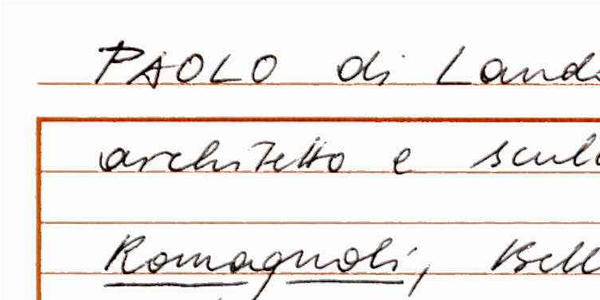 PAOLO di Lando
architetto e scul
Romagnoli, Bell